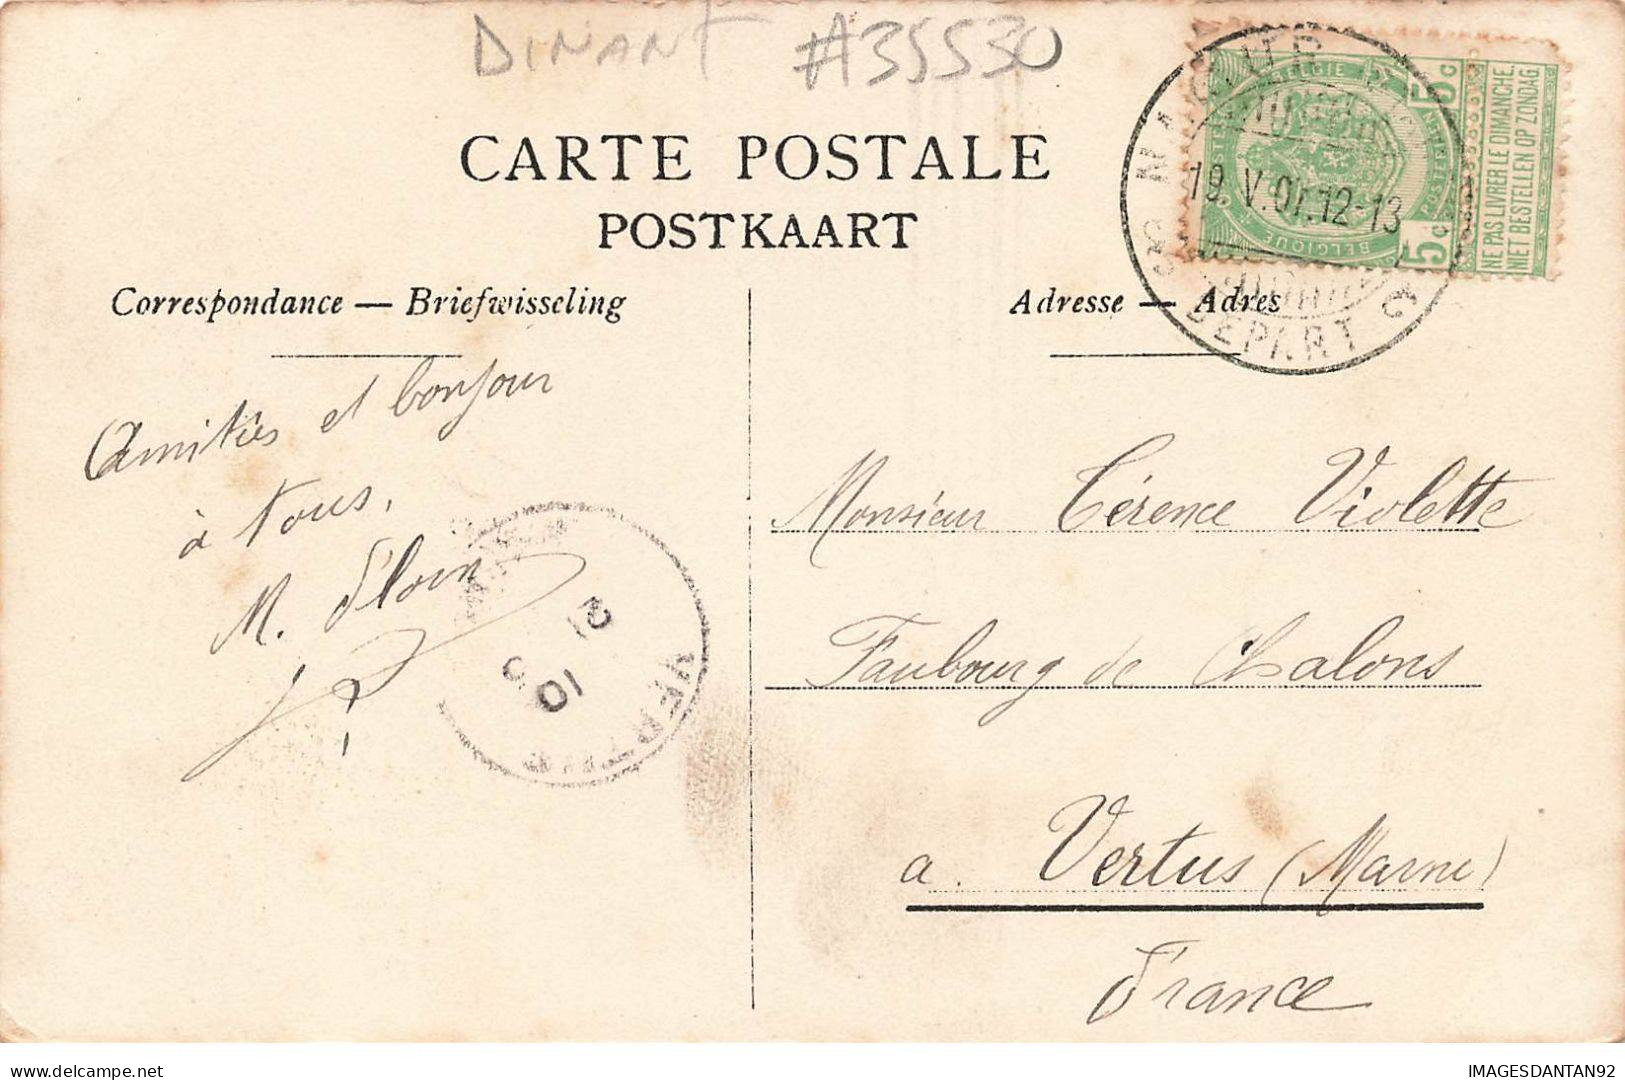 DINANT #35530
CARTE POSTALE
POSTKAART
Correspondance — Briefwisseling
Adresse — Adres
NAMUR
19 V.07.12-13
DEPART
BELGIE
BELGIQUE
5c
5c
NE PAS LIVRER LE DIMANCHE.
NIET BESTELLEN OP ZONDAG.
Amitiés et bonjour
à tous,
M.
21
10
Monsieur Térence Violette
Faubourg de Chalons
a. Vertus (Marne)
France
delcampe.net
IMAGESDANTAN92